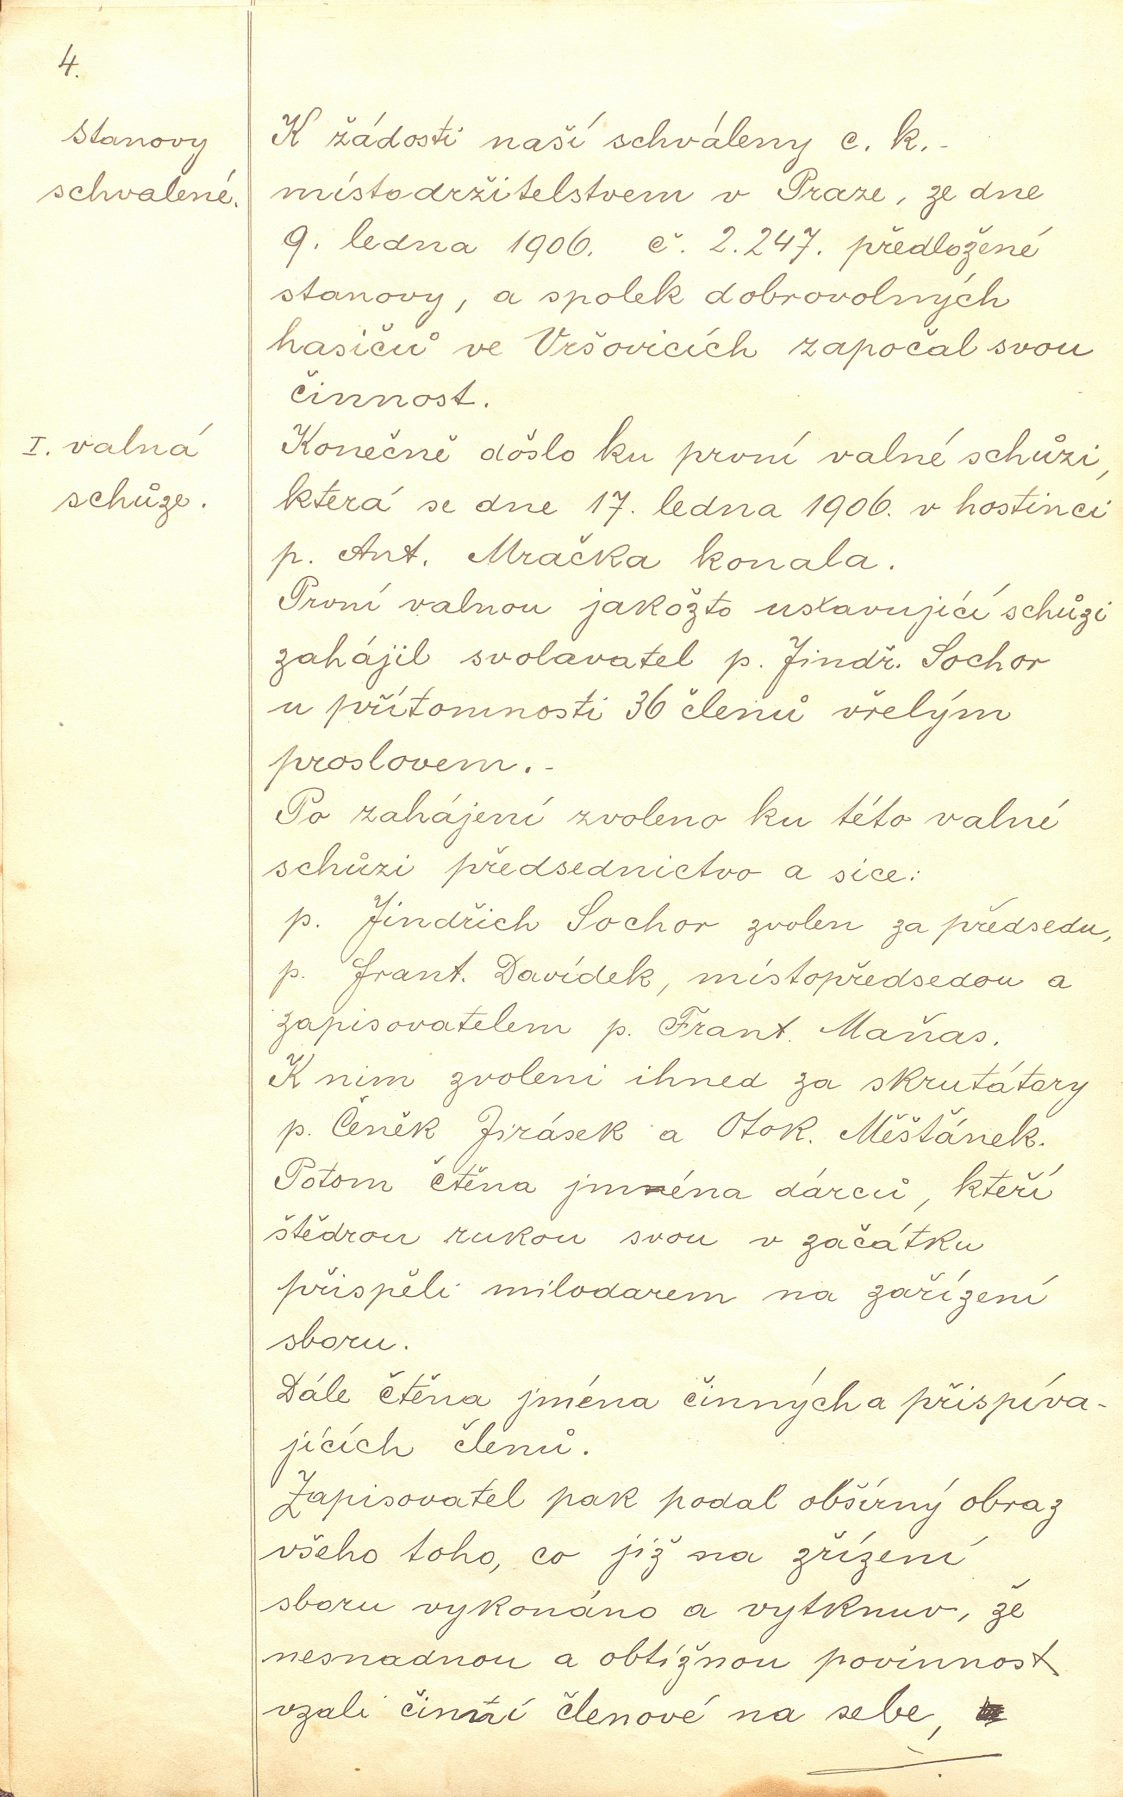 4.
Stanovy
schvalené.
K žádosti naší schváleny c. k. -
místodržitelstvem v Praze, ze dne
9. ledna 1906. č. 2.247. předložené
stanovy, a spolek dobrovolných
hasičů ve Vršovicích započal svou
činnost.
I. valná
schůze.
Konečně došlo ku první valné schůzi,
která se dne 17. ledna 1906. v hostinci
p. Ant. Mračka konala.
První valnou jakožto ustavující schůzi
zahájil svolavatel p. Jindř. Sochor
u přítomnosti 36 členů vřelým
proslovem. -
Po zahájení zvoleno ku této valné
schůzi předsednictvo a sice:
p. Jindřich Sochor zvolen za předsedu,
p. Frant. Davídek, místopředsedou a
zapisovatelem p. Frant. Maňas.
K nim zvoleni ihned za skrutátory
p. Čeněk Jirásek a Otok. Měšťánek.
Potom čtěna jména dárců, kteří
štědrou rukou svou v začátku
přispěli milodarem na zařízení
sboru.
Dále čtěna jména činných a přispíva-
jících členů.
Zapisovatel pak podal obšírný obraz
všeho toho, co již na zřízení
sboru vykonáno a vytknuv, že
nesnadnou a obtížnou povinnost
vzali činní členové na sebe,